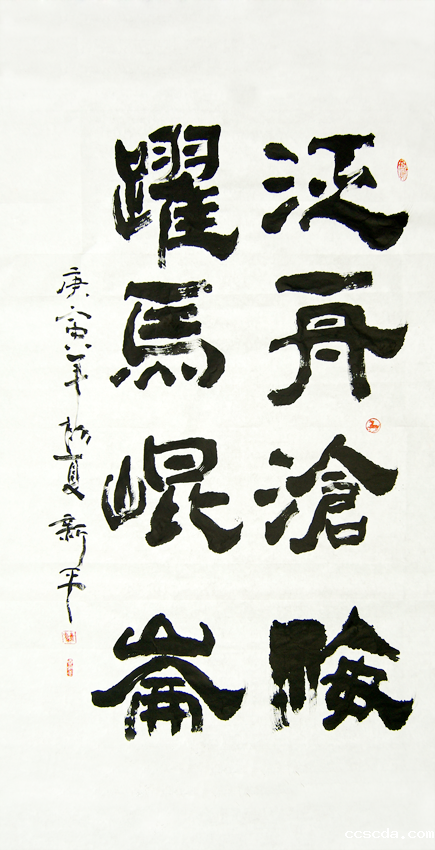 泛舟滄海
躍馬崐崙
庚寅年初夏新平
ccscda.com